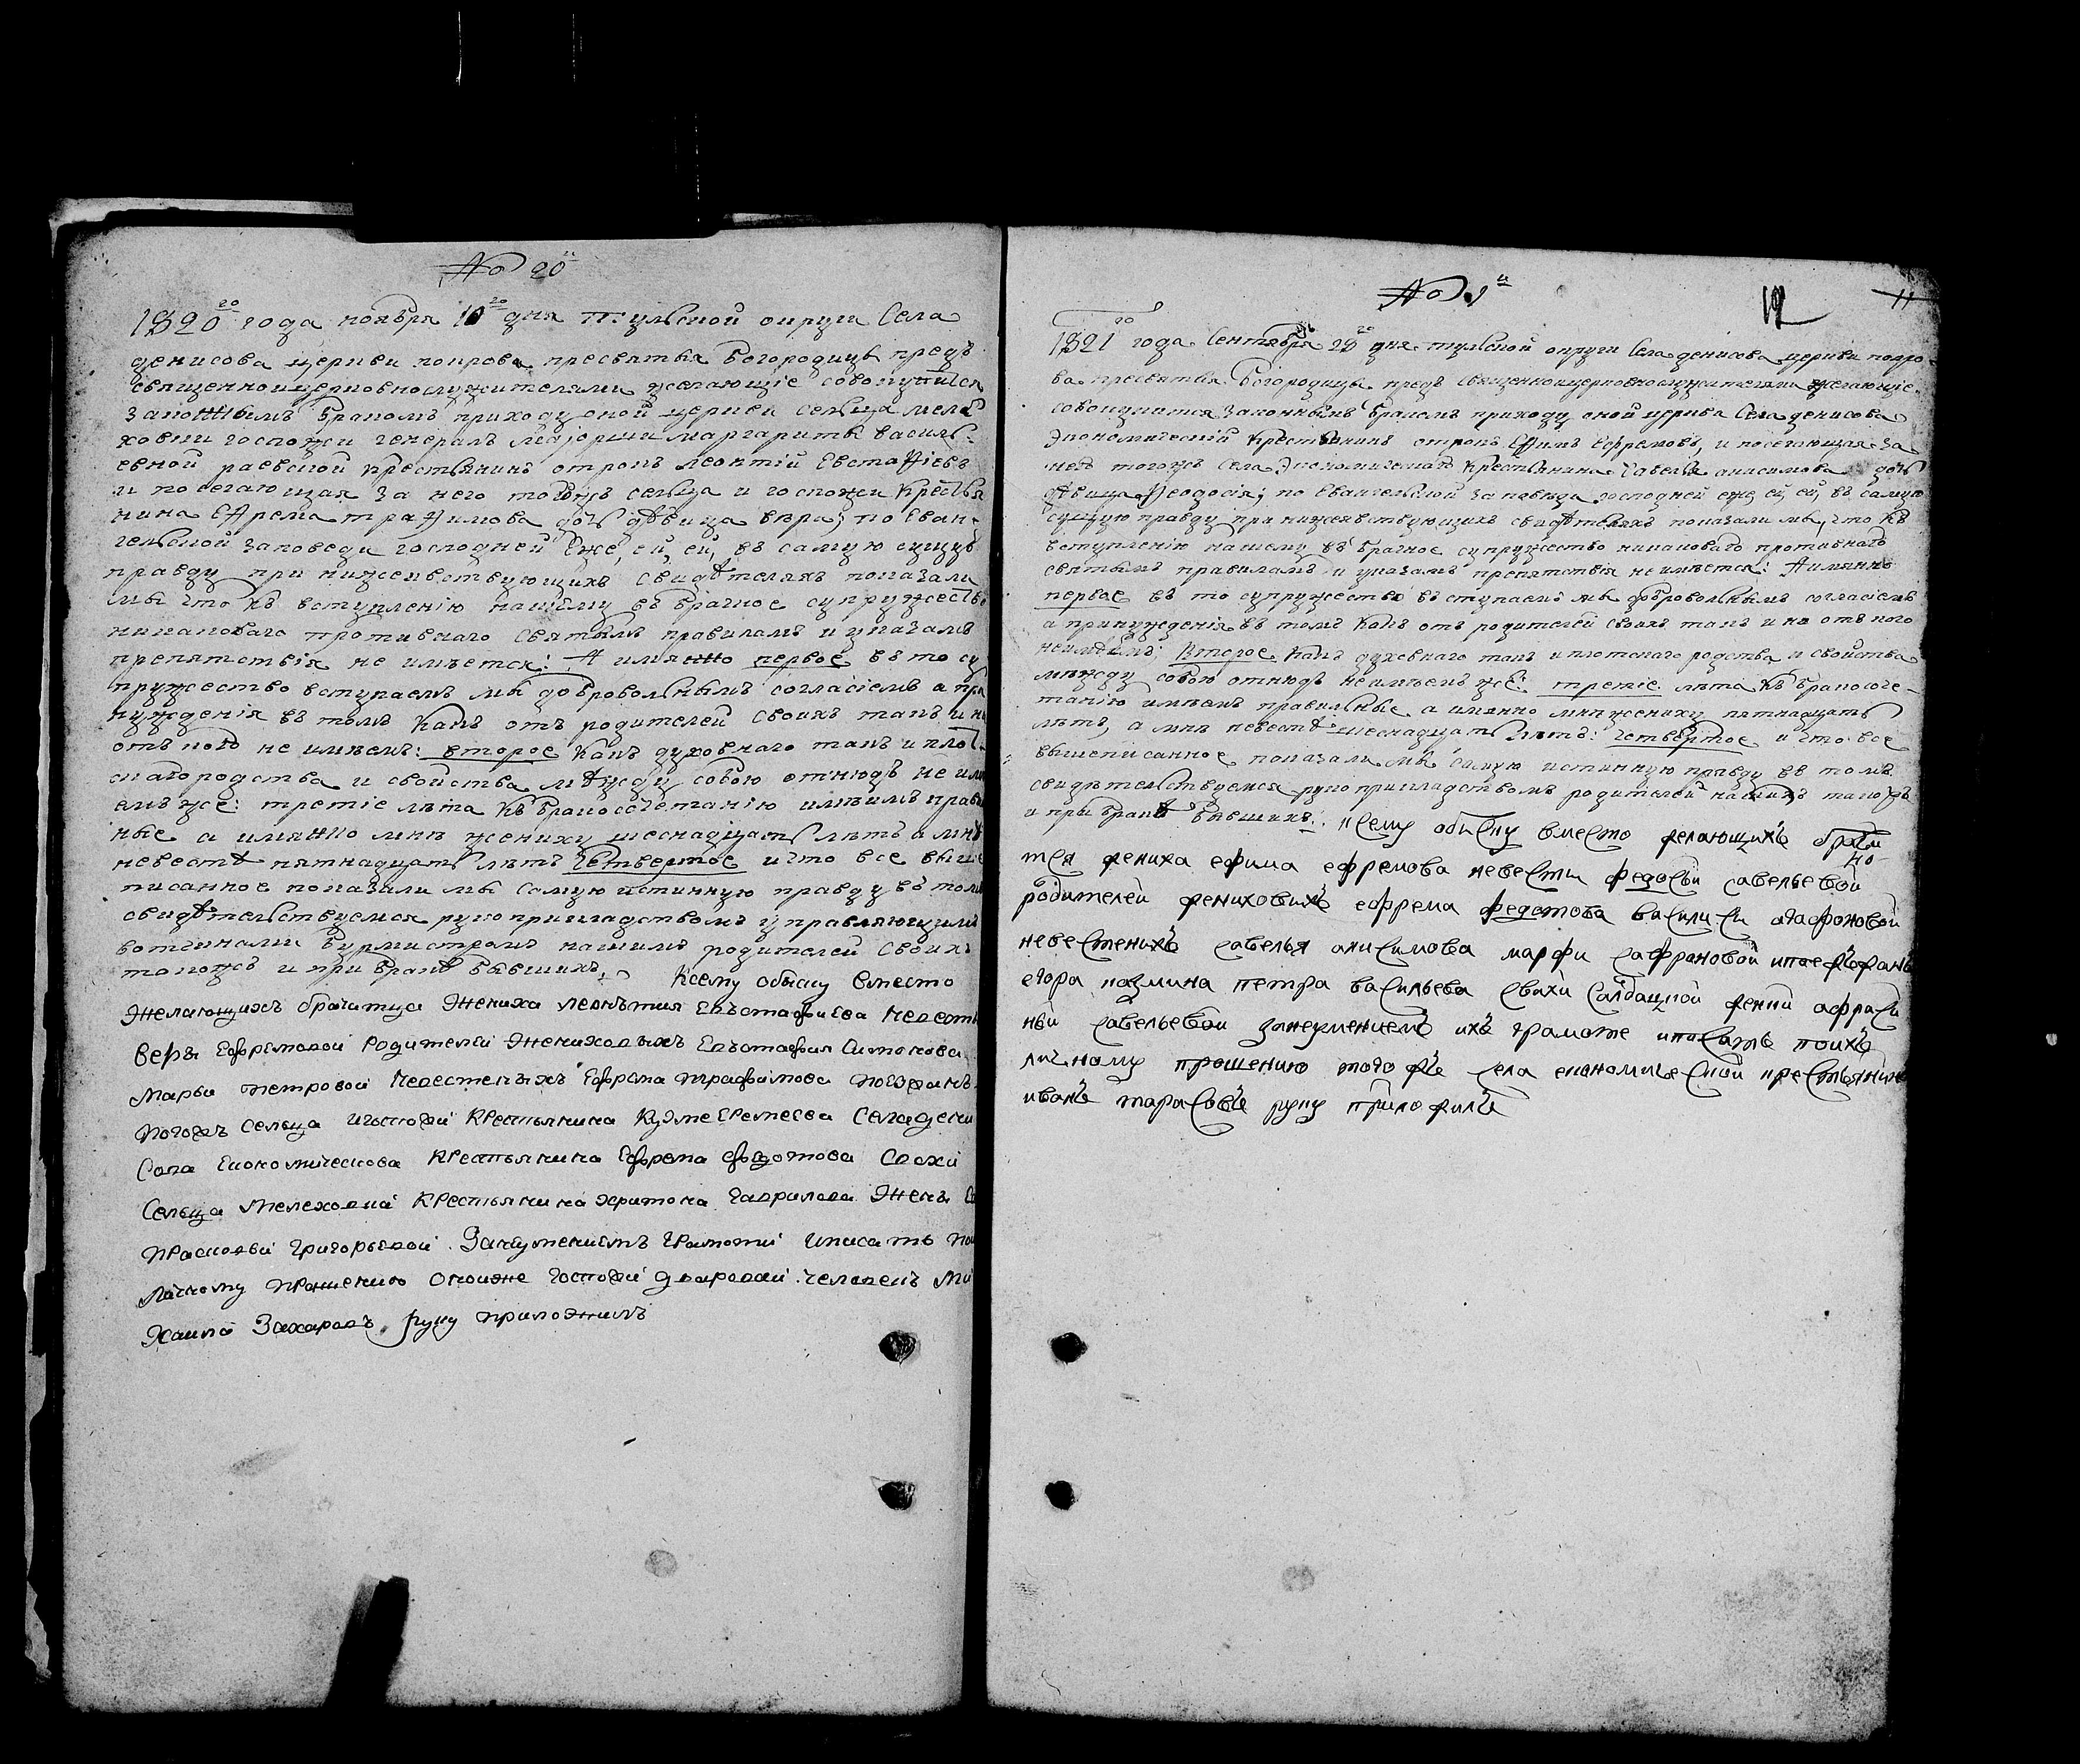 № 20й
1820го года ноября 10го дня тульской округи Села
денисова церкви покрова пресвятыя богородицы предъ
священноицерковнослужителями желающіе совокупится
законнымъ бракомъ приходу оной церкви сельца меле
ховки госпожи генералъ маіорши маргариты василь-
евной раевской крестьянинъ отрокъ леонтій Евстафіевъ
и посягающая за него тогожъ сельца и госпожи Крестья
нина Ефрема трафимова дочь дѣвица вера; по Еван-
гельской заповеди господней Еже, ей, ей, въ самую сущую
правду при нижеявствующихъ свидѣтеляхъ показали
мы что къ вступленію нашему въ брачное супружество
никаковаго противнаго святымъ правиламъ и указамъ
препятствія не имѣется: А имянно первое въ то су
пружество вступаемъ мы добровольнымъ согласіемъ а при
нужденія въ томъ какъ отъ родителей своихъ такъ и ни
отъ кого не имѣемъ: второе какъ духовнаго такъ и плот-
скагородства и свойства мѣжду собою отнюдь не имѣ
емъ же: третіе лѣта къ бракосочетанію имѣимъ правиль
ные а имянно мнѣ жениху шеснадцать лѣтъ а мнѣ
невестѣ пятнадцать лѣтъ Четвертое и что все выше
писанное показали мы самую истинную правду въ томъ
свидѣтельствуемся рукоприкладствомъ управляющимъ
вотчинами бурмистромъ нашимъ родителей своихъ
такожъ и при бракѣ бывшихъ. Ксему обыску вместо
желающихъ брачитца жениха леонътия Евъстафиева невесты
веры Ефремовой родителей жениховыхъ Евъстафия Симонова
марьи петровой невестеныхъ Ефрема трафимова поезжанъ
тогожъ сельца игоспожи крестьянина Кузме Еремеева Селадени
Сова Економическова крестьянина Ефрема федотова Свахи
Сельца мелеховки крестьянина харитона гаврилова жены
прасковьи григорьевой. Занеумениемъ грамоти иписать по
личному прошению оноиже госпожи дворовай человекъ Ми
хаила Захаровъ руку приложилъ
№ 1й
12
11
1821го года Сентября 29го дня тульской округи Села денисова церкви покро-
ва пресвятыя богородицы предъ священноицерковнослужителями желающіе
совокупится Законнымъ бракомъ приходу оной церкви Села денисова
Экономическій крестьянинъ отрокъ Ефимъ Ефремовъ, и посягающая за
него тогожъ Села Экономическаго крестьянина Савелья анисимова дочь
дѣвица Феодосія; по Евангельской заповѣди господней еже ей, ей, въ самую
сущую правду при нижеявствующихъ свидѣтеляхъ показали мы, что къ
вступленію нашему въ брачное супружество никаковаго противнаго
святымъ правиламъ и указамъ препятствія не имѣется: А имянно
первое въ то супружество вступаемъ мы добровольнымъ согласіемъ
а принужденія въ томъ какъ отъ родителей своихъ такъ и не отъ кого
неимѣемъ; Второе какъ духовнаго такъ и плотскаго родства и свойства
мѣжду собою отнюдь неимѣемъ же: третіе лѣта къ бракосоче-
танію имѣемъ правильные а имянно мнѣ жениху пятнадцать
лѣтъ, а мнѣ невестѣ шеснадцать лѣтъ: Четвертое и что все
вышеписанное показали мы самую истинную правду въ томъ
свидѣтельствуемся рукоприкладствомъ родителей нашихъ такожъ
и при бракѣ бывшихъ. Ксему обыску вместо желающихъ брачи
тся жениха ефима ефремова невесты федосьи савельевой
родителей жениховыхъ ефрема федотова василиси агафоновой
невестенихъ савелья анисимова марфи сафроновой ипоезжанъ
егора казмина петра васильева свахи Салдацкой женки афраси
ньи савельевой занеумениемъ ихъ грамоте иписать поихъ
личному прошению того же села економической крестьянинъ
иванъ тарасовъ руку приложилъ